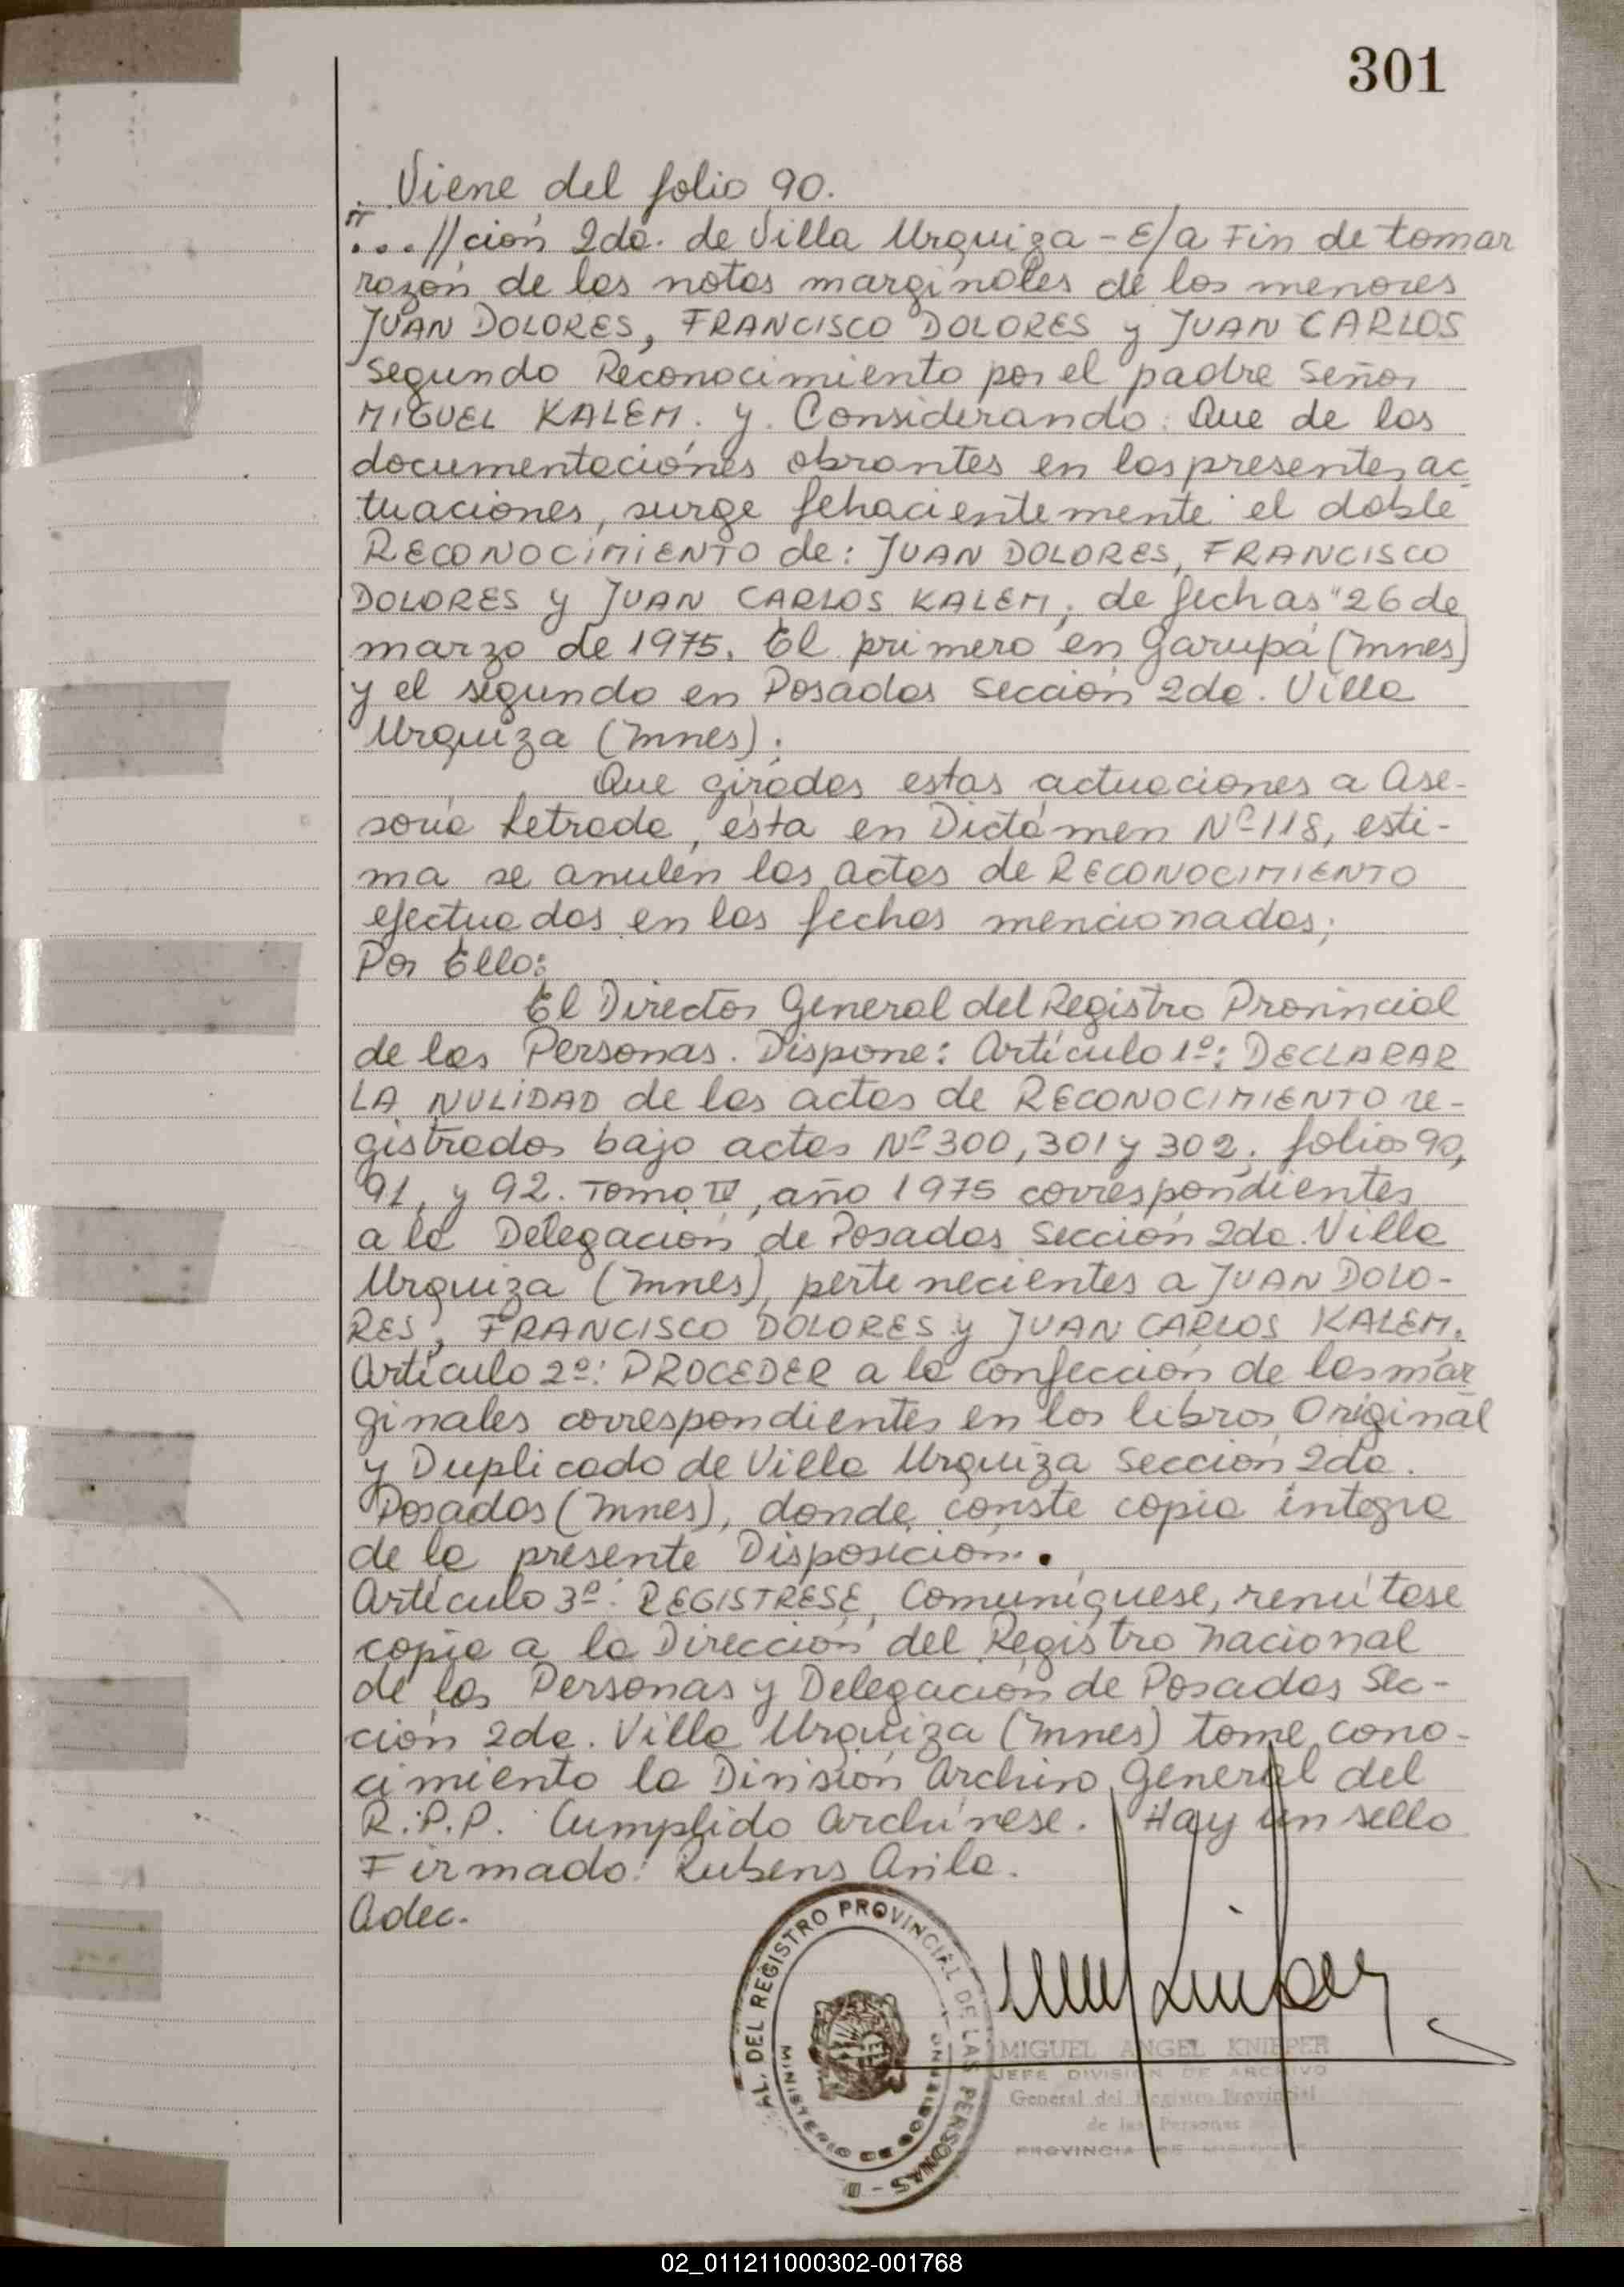 301
Viene del folio 90.
"...//ción 2da. de Villa Urquiza - E/a Fin de tomar
razón de las notas marginales de los menores
JUAN DOLORES, FRANCISCO DOLORES y JUAN CARLOS
segundo Reconocimiento por el padre Señor
MIGUEL KALEM. y Considerando: Que de las
documentaciones obrantes en las presentes ac
tuaciones, surge fehacientemente el doble
RECONOCIMIENTO de: JUAN DOLORES, FRANCISCO
DOLORES y JUAN CARLOS KALEM, de fechas "26 de
marzo de 1975. El primero en Garupá (Mnes)
y el segundo en Posadas Sección 2da. Villa
Urquiza (Mnes);
Que giradas estas actuaciones a Ase-
soría Letrada, ésta en Dictámen Nº 118, esti-
ma se anulen las actas de RECONOCIMIENTO
efectuadas en las fechas mencionadas;
Por Ello:
El Director General del Registro Provincial
de las Personas. Dispone: Artículo 1º: DECLARAR
LA NULIDAD de las actas de RECONOCIMIENTO re-
gistradas bajo actas Nº 300, 301 y 302, folios 90,
91, y 92. Tomo IV, año 1975 correspondientes
a la Delegación de Posadas Sección 2da. Villa
Urquiza (Mnes), pertenecientes a JUAN DOLO-
RES, FRANCISCO DOLORES y JUAN CARLOS KALEM.
Artículo 2º: PROCEDER a la confección de las mar
ginales correspondientes en los libros Original
y Duplicado de Villa Urquiza Sección 2da.
Posadas (Mnes), donde conste copia íntegra
de la presente Disposición.
Artículo 3º: REGISTRESE, Comuníquese, remítase
copia a la Dirección del Registro Nacional
de las Personas y Delegación de Posadas Sec-
ción 2da. Villa Urquiza (Mnes) tome cono-
cimiento la División Archivo General del
R.P.P. Cumplido Archívese. Hay un sello
Firmado: Rubens Avila.
Adec.
AL. DEL REGISTRO PROVINCIAL DE LAS PERSONAS
MINISTERIO DE GOBIERNO
MIGUEL ANGEL KNIEPER
JEFE DIVISION DE ARCHIVO
General del Registro Provincial
de las Personas
PROVINCIA DE MISIONES
02_011211000302-001768